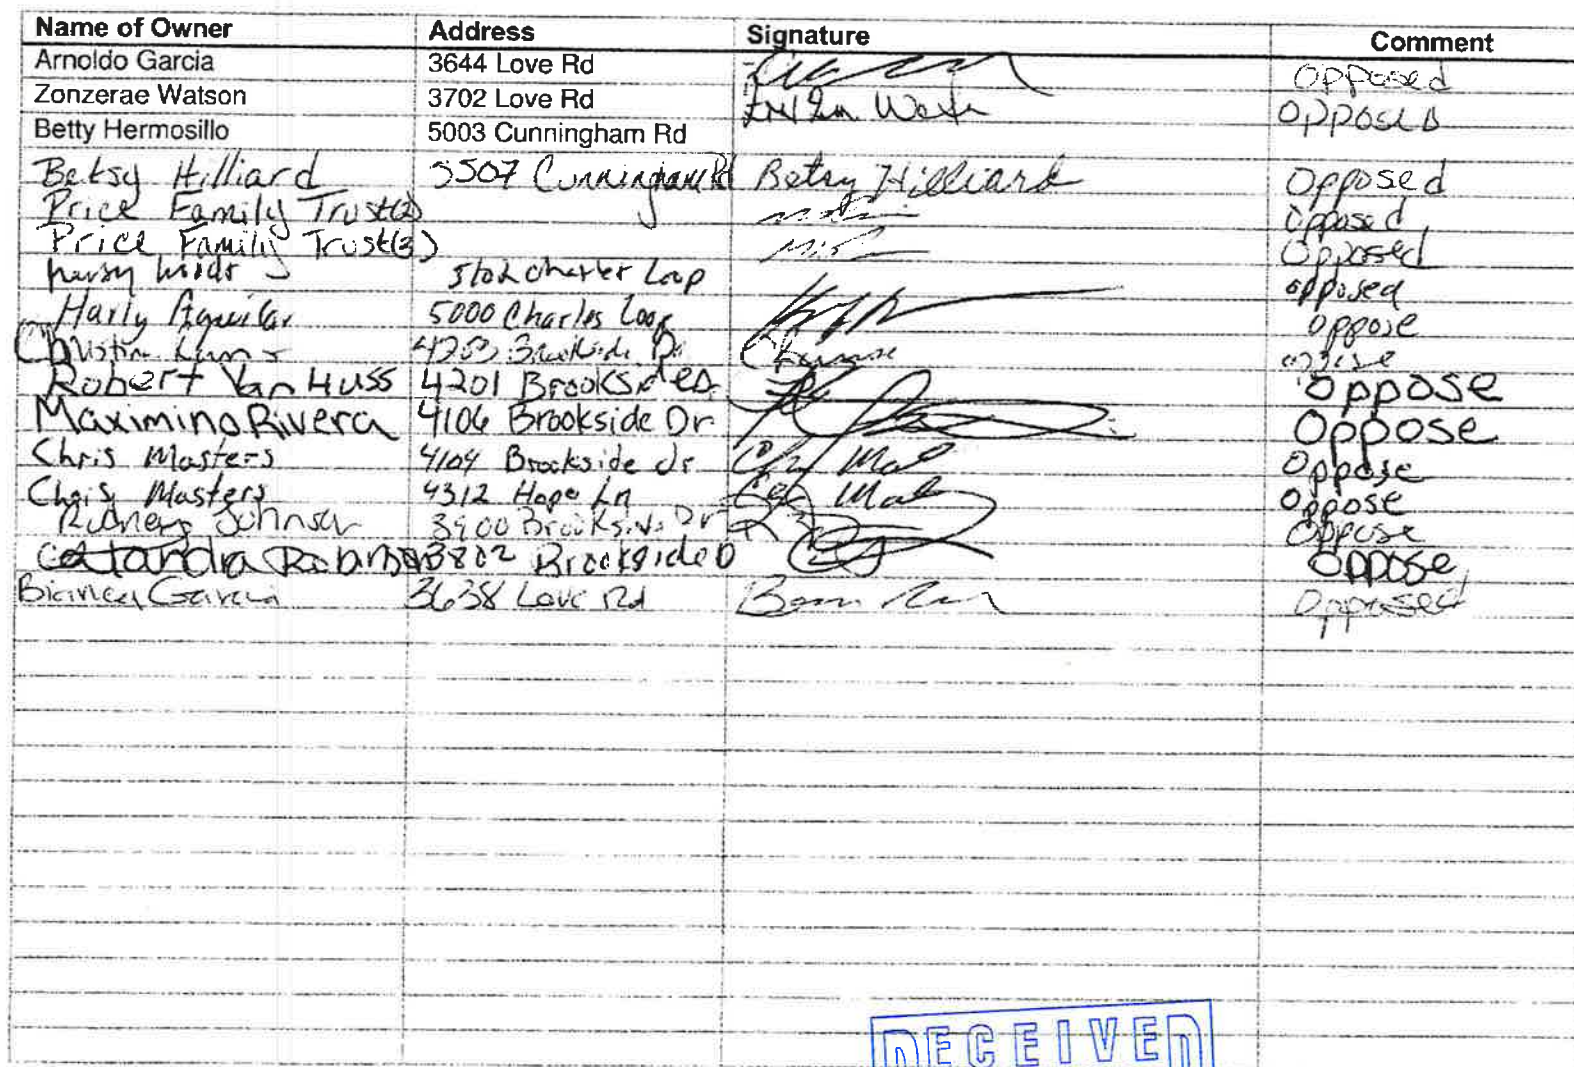 Name of Owner Address Signature Comment
Arnoldo Garcia 3644 Love Rd Opposed
Zonzerae Watson 3702 Love Rd Opposed
Betty Hermosillo 5003 Cunningham Rd
Betsy Hilliard 5507 Cunningham Rd Betsy Hilliard Opposed
Price Family Trust(2) Opposed
Price Family Trust(3) Opposed
Loop opposed
Harly Aguilar 5000 Charles Loop oppose
Christin
Robert Van Huss 4201 Brookside Oppose
Maximino Rivera 4106 Brookside Dr Oppose
Chris Masters 4104 Brookside dr Oppose
Chris Masters 4312 Hope Ln Oppose
Rodney Johnson 3900 Brookside Dr Oppose
3802 Brookside D Oppose
Bianca Garcia 3638 Love Rd Opposed
RECEIVED